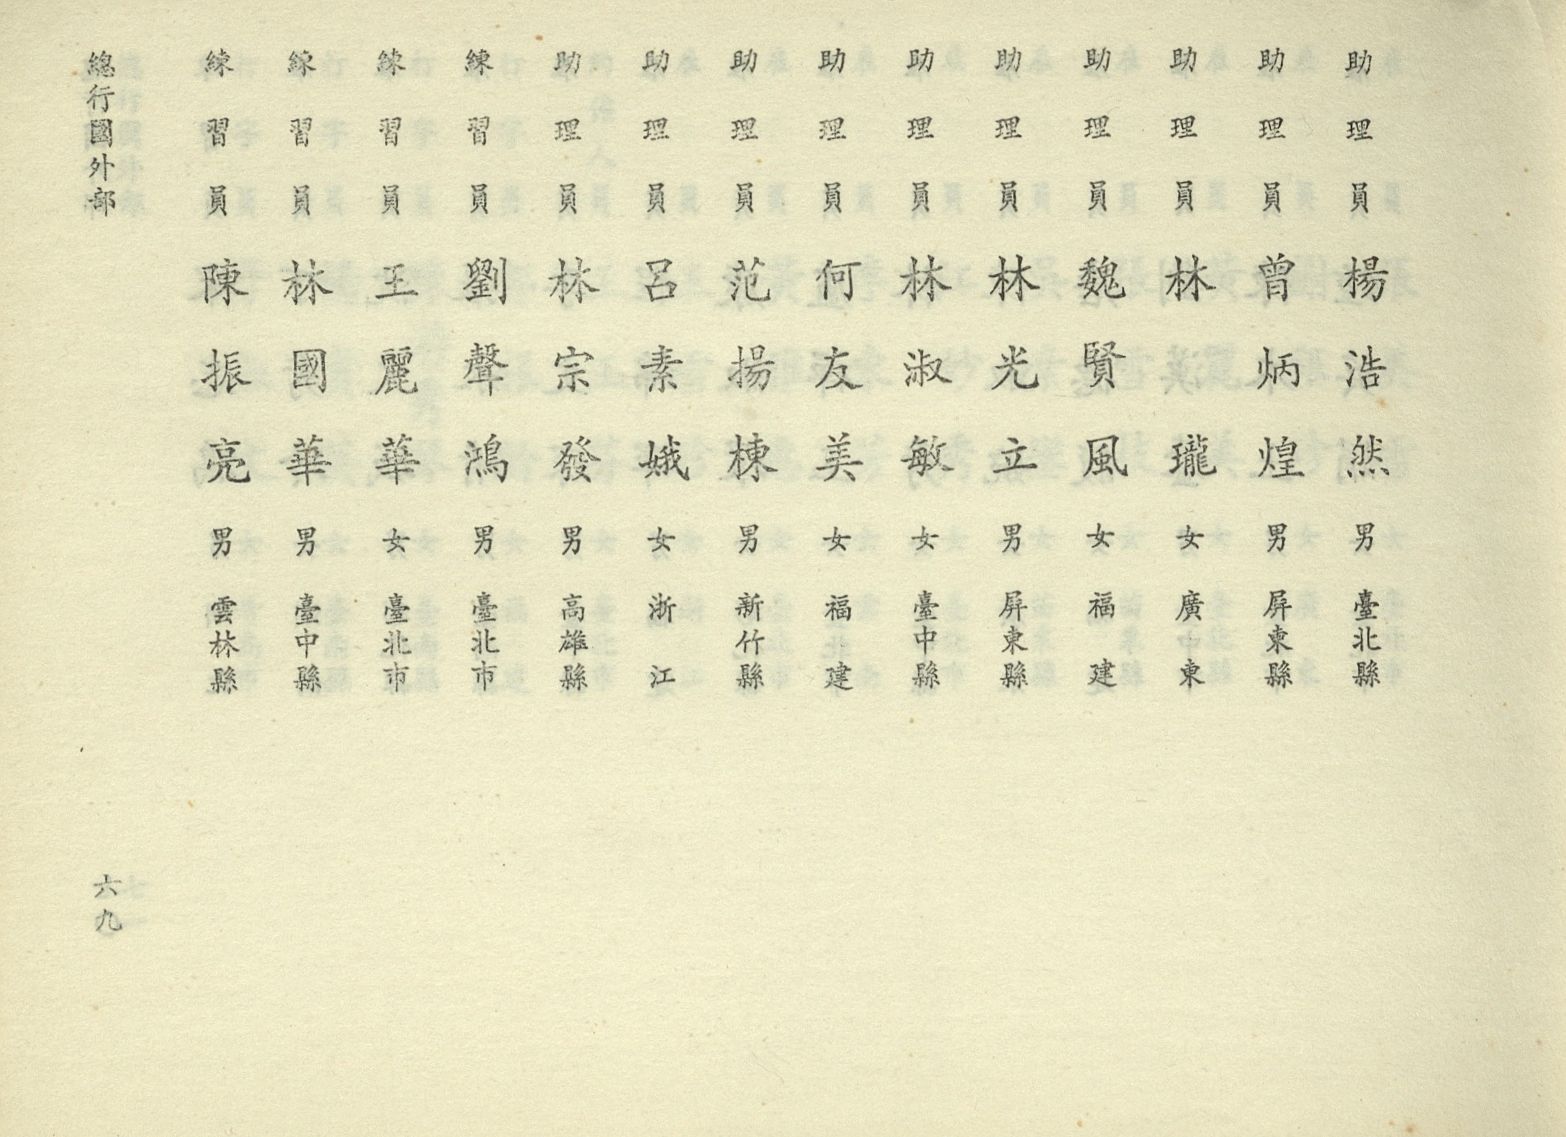 助理員 楊浩然 男 臺北縣
助理員 曾炳煌 男 屏東縣
助理員 林瓏 女 廣東
助理員 魏賢風 女 福建
助理員 林光立 男 屏東縣
助理員 林淑敏 女 臺中縣
助理員 何友美 女 福建
助理員 范揚棟 男 新竹縣
助理員 呂素娥 女 浙江
助理員 林宗發 男 高雄縣
練習員 劉聲鴻 男 臺北市
練習員 王麗華 女 臺北市
練習員 林國華 男 臺中縣
練習員 陳振亮 男 雲林縣
總行國外部
六九